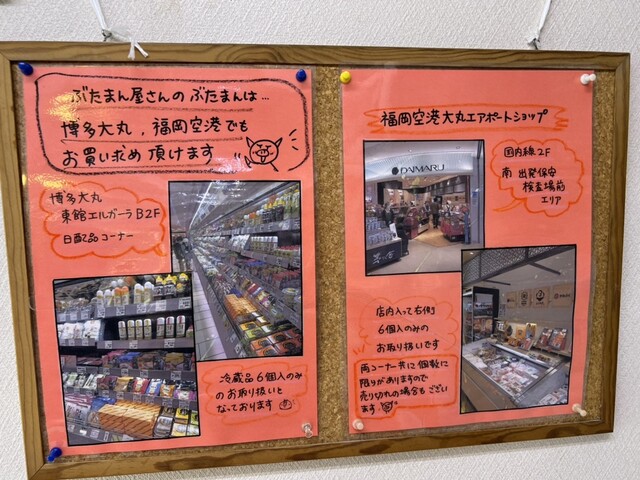 ぶたまん屋さんの ぶたまんは…
博多大丸，福岡空港でも
お買い求め頂けます
博多大丸
東館エルガーラB2F
日配品コーナー
冷蔵品6個入のみ
のお取り扱いと
なっております
福岡空港大丸エアポートショップ
DAIMARU
国内線2F
南 出発保安
検査場前
エリア
店内入って右側
6個入のみの
お取り扱いです
両コーナー共に個数に
限りがありますので
売り切れの場合もござい
ます